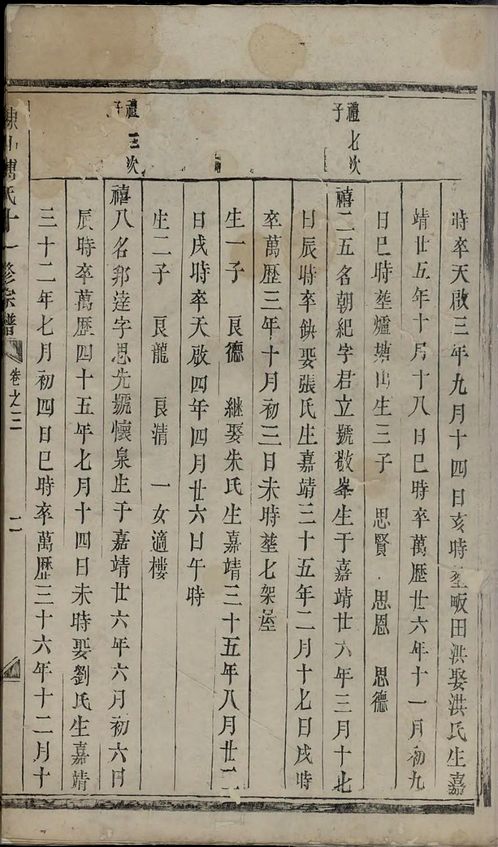 時卒天啟三年九月十四日亥時塟畈田洪娶洪氏生嘉
靖廿五年十月十八日巳時卒萬歷廿六年十一月初九
日巳時塟爐塘山生三子 思賢 思恩 思德
禮七次子
禧二五名朝紀字君立號敬峯生于嘉靖廿六年三月十七
日辰時卒缺娶張氏生嘉靖三十五年二月十七日戌時
卒萬歷三年十月初三日未時塟七架屋
生一子 良德 継娶朱氏生嘉靖三十五年八月廿二
日戌時卒天啟四年四月廿六日午時
生二子 良龍 良清 一女適樓
禮三次子
禧八名邦達字思先號懷泉生于嘉靖廿六年六月初六日
辰時卒萬歷四十五年七月十四日未時娶劉氏生嘉靖
三十二年七月初四日巳時卒萬歷三十六年十二月十
氏十一修宗譜 卷之三 二